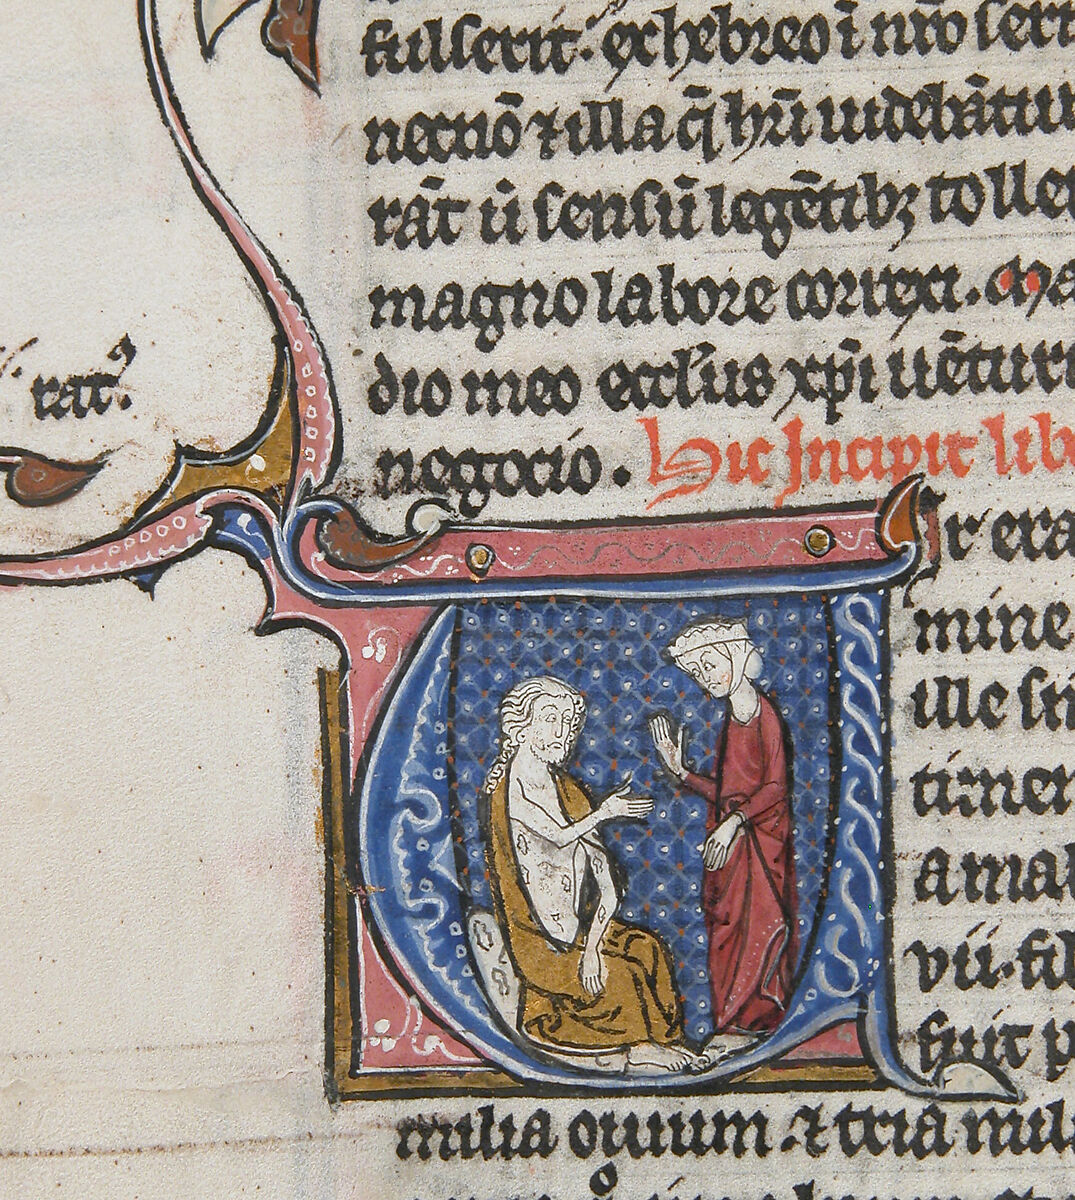 fulserit. ex hebreo ī nr̄o ser
nectiō ⁊ illa q̄ hr̄i uidebāt̄ur
rāt ū sensū legētibꝫ toller
magno labore correxi. Ma
dio meo eccl'ius xp̄i uētur
rat᷒.
negocio. Hic Incipit lib
Vir era
mine
ille si
timen
a mal
vii. fil
fuit p
milia ouium ⁊ tria mil